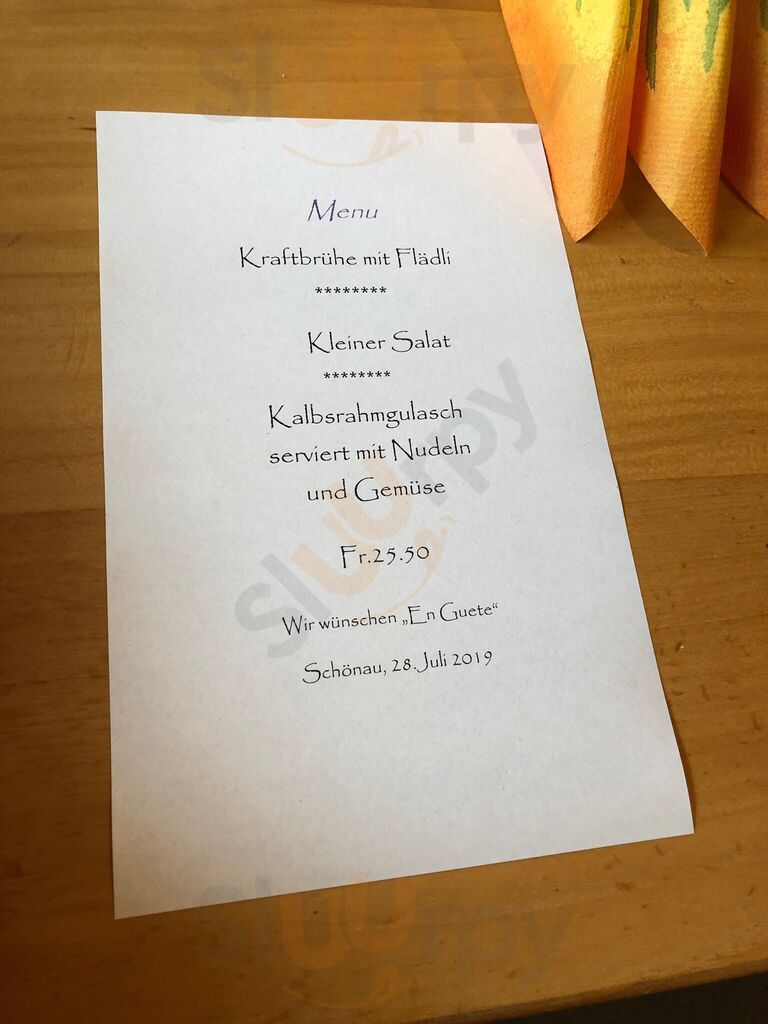 Menu
Kraftbrühe mit Flädli
********
Kleiner Salat
********
Kalbsrahmgulasch
serviert mit Nudeln
und Gemüse
Fr.25.50
Wir wünschen „En Guete“
Schönau, 28. Juli 2019
sluurpy
sluurpy
sluurpy